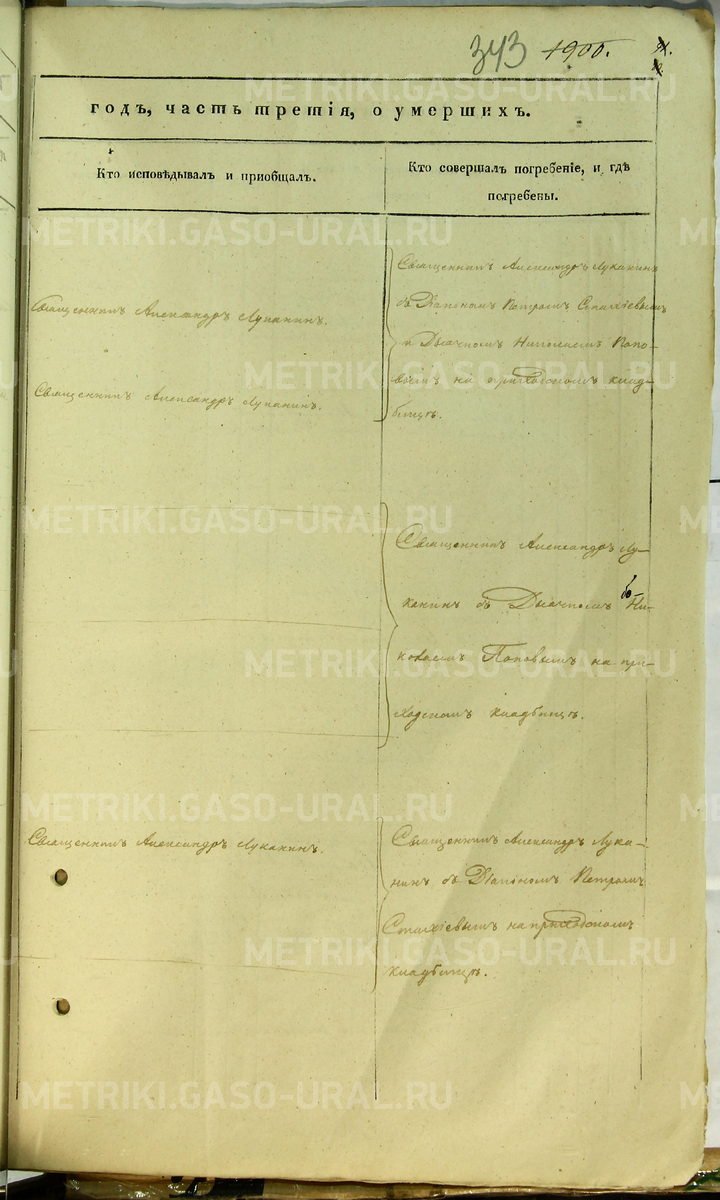 343 1900.
годъ, часть третія, о умершихъ.
Кто исповѣдывалъ и пріобщалъ.
Кто совершалъ погребеніе, и гдѣ
погребены.
Священникъ Александръ Луканинъ.
Священникъ Александръ Луканинъ.
Священникъ Александръ Луканинъ
съ Діакономъ Петромъ
и Дьячкомъ Николаемъ Попо-
вымъ на приходскомъ клад-
бищѣ.
Священникъ Александръ Лу-
канинъ съ Дьячкомъ Ни-
колаемъ Поповымъ на при-
ходскомъ кладбищѣ.
Священникъ Александръ Луканинъ.
Священникъ Александръ Лука-
нинъ съ Діакономъ Петромъ
на приходскомъ
кладбищѣ.
METRIKI.GASO-URAL.RU